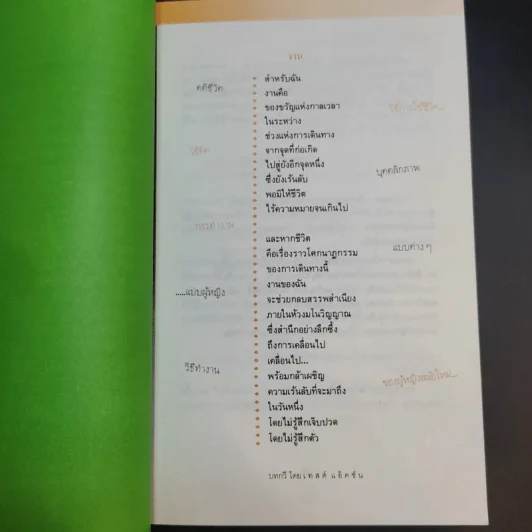 งาน
สำหรับฉัน
งานคือ
ของขวัญแห่งกาลเวลา
ในระหว่าง
ช่วงแห่งการเดินทาง
จากจุดที่ก่อเกิด
ไปสู่ยังอีกจุดหนึ่ง
ซึ่งยังเร้นลับ
พอมีให้ชีวิต
ไร้ความหมายจนเกินไป
และหากชีวิต
คือเรื่องราวโศกนาฏกรรม
ของการเดินทางนี้
งานของฉัน
จะช่วยกลบสรรพสำเนียง
ภายในห้วงมโนวิญญาณ
ซึ่งสำนึกอย่างลึกซึ้ง
ถึงการเคลื่อนไป
เคลื่อนไป...
พร้อมกล้าเผชิญ
ความเร้นลับที่จะมาถึง
ในวันหนึ่ง
โดยไม่รู้สึกเจ็บปวด
โดยไม่รู้สึกตัว
บทกวี โดย เทสต์ แอ๊คชั่น
คติชีวิต
วิธีคิด
การทำงาน
.....แบบผู้หญิง
วิธีทำงาน
วิธีการใช้ชีวิต...
บุคคลิกภาพ
แบบต่าง ๆ
ของผู้หญิงสมัยใหม่...